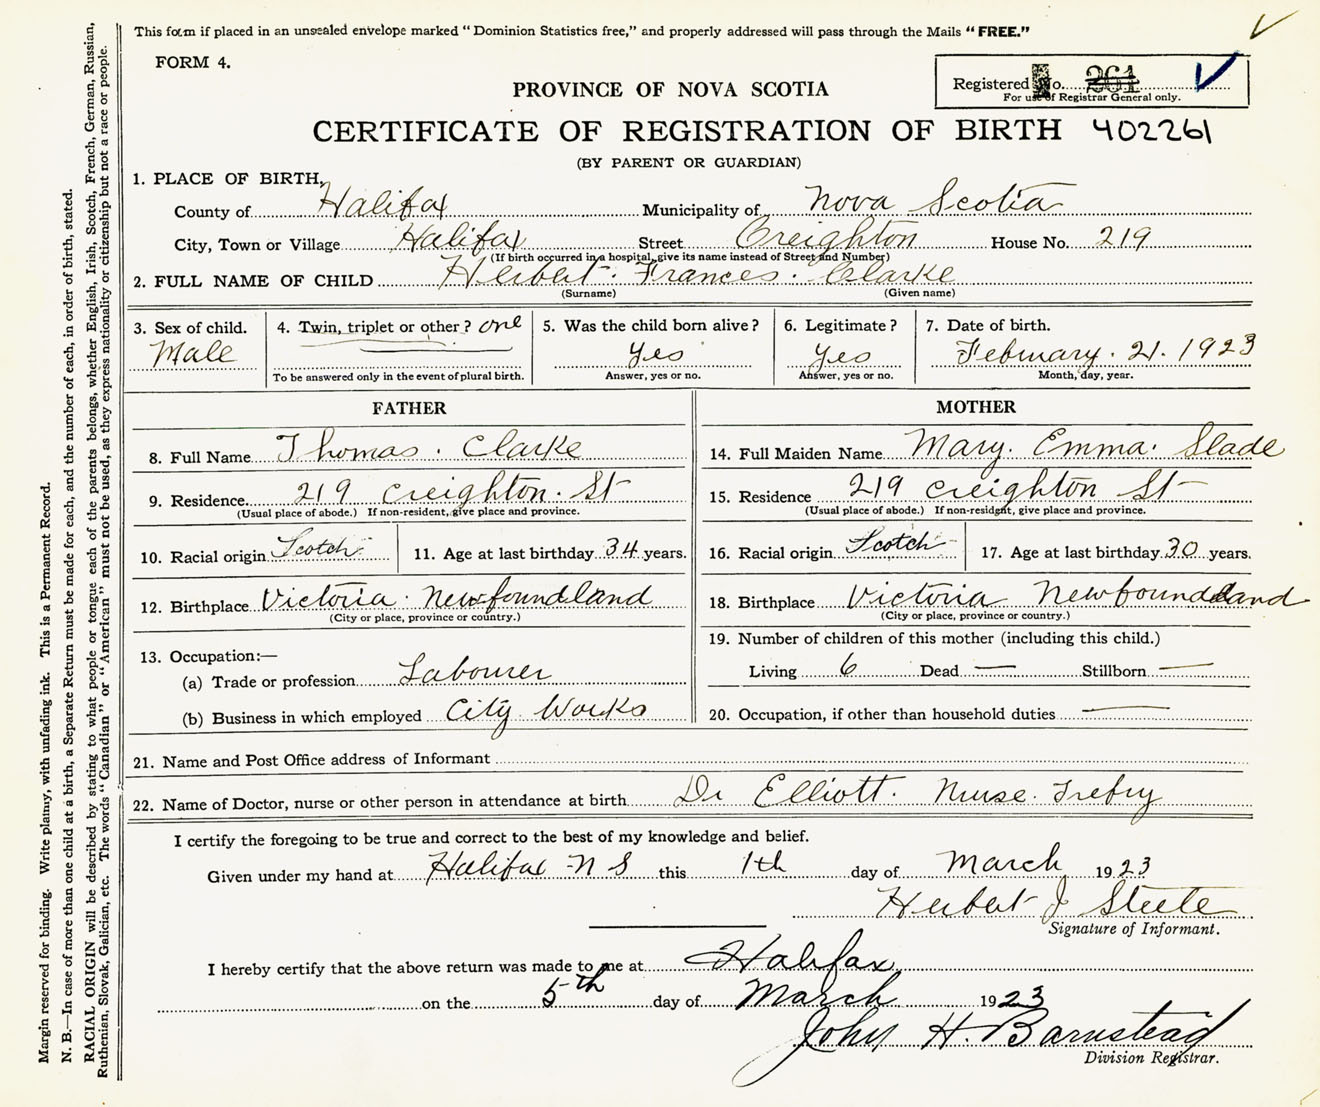 This form if placed in an unsealed envelope marked "Dominion Statistics free," and properly addressed will pass through the Mails "FREE."
FORM 4.
Registered No. 261
For use of Registrar General only.
PROVINCE OF NOVA SCOTIA
CERTIFICATE OF REGISTRATION OF BIRTH 402261
(BY PARENT OR GUARDIAN)
1. PLACE OF BIRTH,
County of Halifax Municipality of Nova Scotia
City, Town or Village Halifax Street Creighton House No. 219
(If birth occurred in a hospital, give its name instead of Street and Number)
2. FULL NAME OF CHILD Herbert. Frances. Clarke
(Surname) (Given name)
3. Sex of child. Male
4. Twin, triplet or other? one
To be answered only in the event of plural birth.
5. Was the child born alive? Yes
Answer, yes or no.
6. Legitimate? Yes
Answer, yes or no.
7. Date of birth. February. 21. 1923
Month, day, year.
FATHER
8. Full Name Thomas. Clarke
9. Residence 219 Creighton. St
(Usual place of abode.) If non-resident, give place and province.
10. Racial origin Scotch 11. Age at last birthday 34 years.
12. Birthplace Victoria. Newfoundland
(City or place, province or country.)
13. Occupation:—
(a) Trade or profession Labourer
(b) Business in which employed City Works
MOTHER
14. Full Maiden Name Mary. Emma. Slade
15. Residence 219 Creighton St
(Usual place of abode.) If non-resident, give place and province.
16. Racial origin Scotch 17. Age at last birthday 30 years.
18. Birthplace Victoria Newfoundland
(City or place, province or country.)
19. Number of children of this mother (including this child.)
Living 6 Dead — Stillborn —
20. Occupation, if other than household duties —
21. Name and Post Office address of Informant
22. Name of Doctor, nurse or other person in attendance at birth Dr Elliott. Nurse. Trefry
I certify the foregoing to be true and correct to the best of my knowledge and belief.
Given under my hand at Halifax N S this 1th day of March 1923
Herbert J Steele
Signature of Informant.
I hereby certify that the above return was made to me at Halifax
on the 5th day of March 1923
John H. Barnstead
Division Registrar.
Margin reserved for binding. Write plainly, with unfading ink. This is a Permanent Record.
N. B.—In case of more than one child at a birth, a Separate Return must be made for each, and the number of each, in order of birth, stated.
RACIAL ORIGIN will be described by stating to what people or tongue each of the parents belongs, whether English, Irish, Scotch, French, German, Russian,
Ruthenian, Slovak, Galician, etc. The words "Canadian" or "American" must not be used, as they express nationality or citizenship but not a race or people.